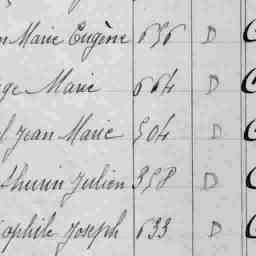 Marie Eugène 656 D
Marie 664 D
Jean Marie 504 D
thurin Julien 358 D
ophile Joseph 633 D